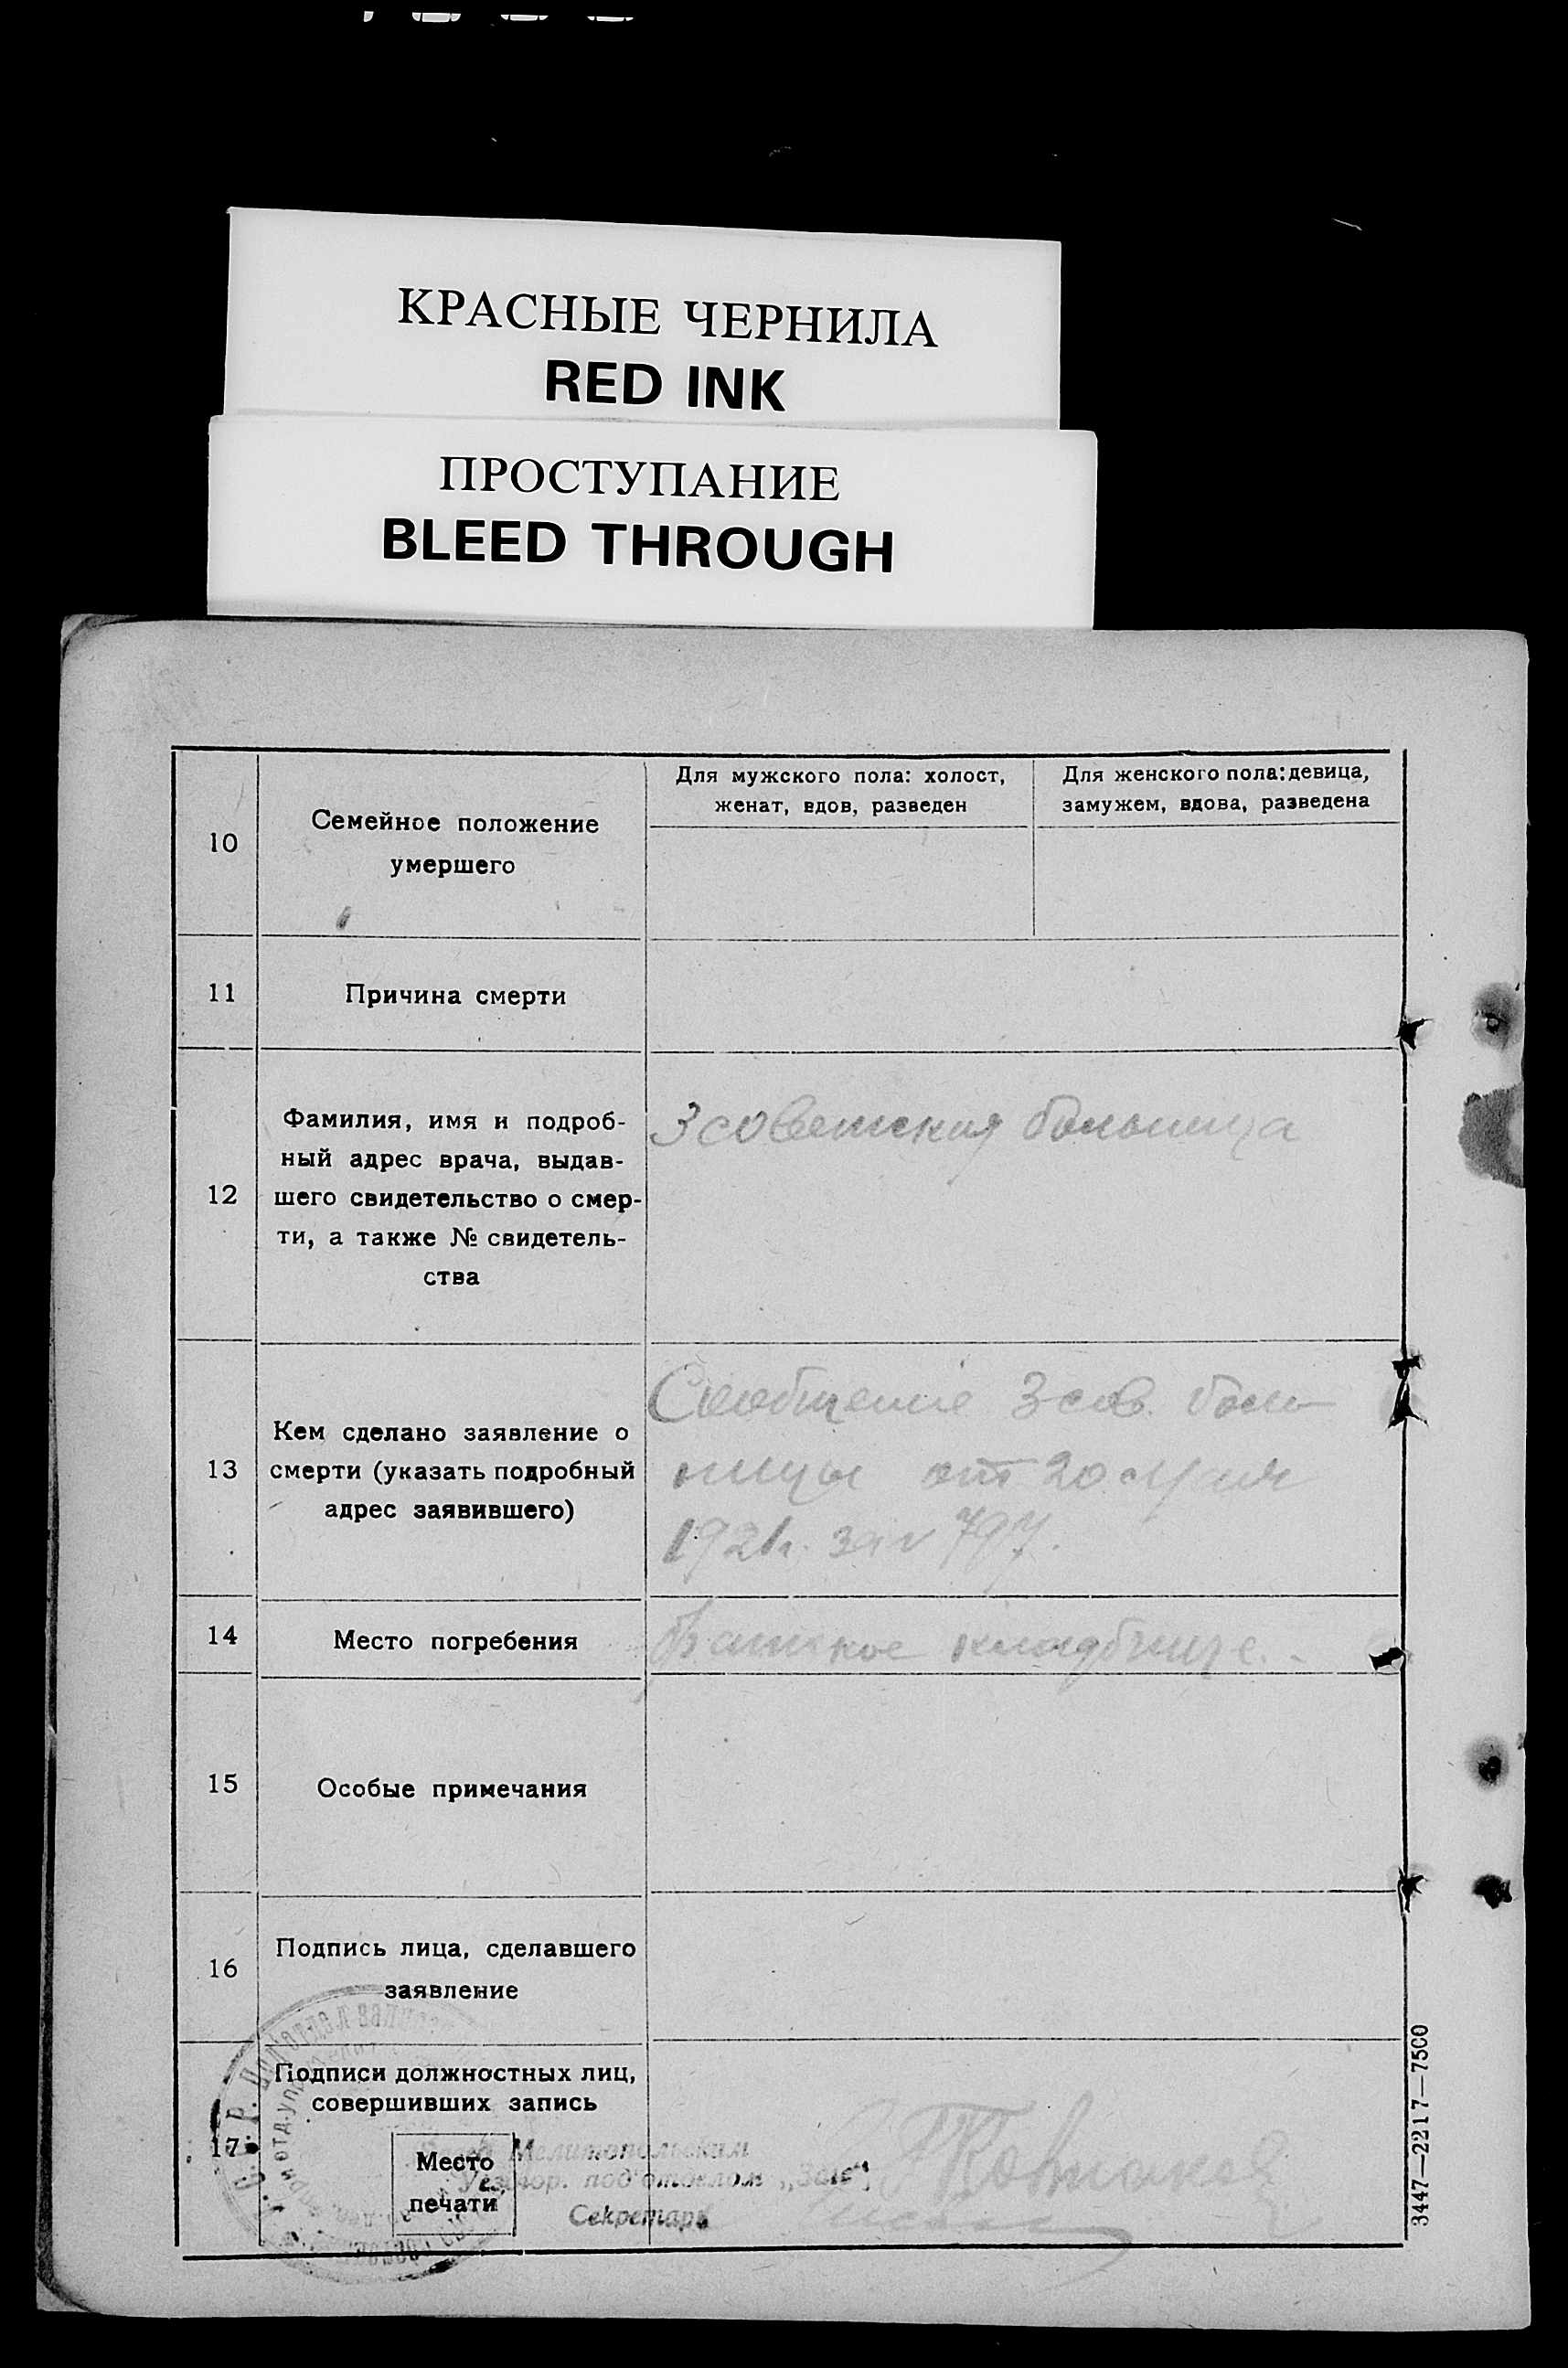 КРАСНЫЕ ЧЕРНИЛА
RED INK
ПРОСТУПАНИЕ
BLEED THROUGH
10
Семейное положение
умершего
Для мужского пола: холост,
женат, вдов, разведен
Для женского пола: девица,
замужем, вдова, разведена
11
Причина смерти
12
Фамилия, имя и подроб-
ный адрес врача, выдав-
шего свидетельство о смер-
ти, а также № свидетель-
ства
3 советская больница
13
Кем сделано заявление о
смерти (указать подробный
адрес заявившего)
Сообщение 3 сов. боль-
ницы от 20
1921г. за № 797.
14
Место погребения
Братское кладбище.
15
Особые примечания
16
Подпись лица, сделавшего
заявление
17
Подписи должностных лиц,
совершивших запись
Место
печати
Мелитопольским
под'отделом „ЗАГС"
Секретарь
3447—2217—7500